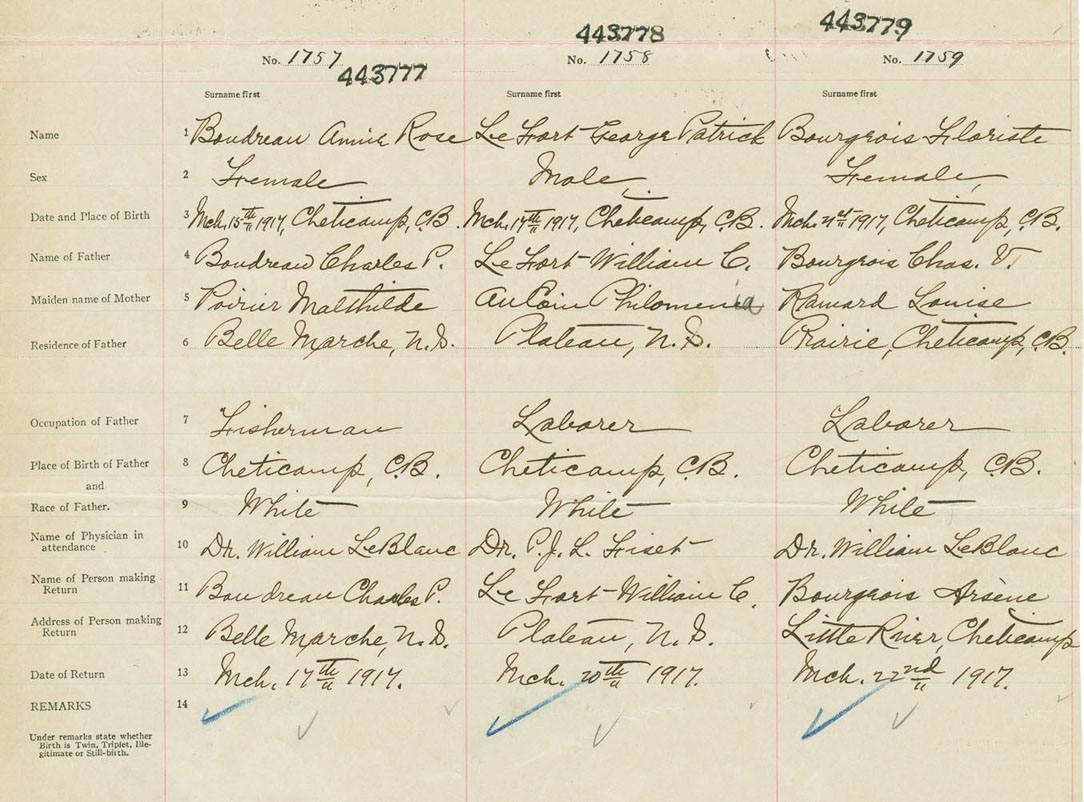 443778 443779
No. 1757 443777 No. 1758 No. 1759
Surname first Surname first Surname first
Name 1 Boudreau Annie Rose Le Fort George Patrick Bourgeois Floriste
Sex 2 Female Male Female
Date and Place of Birth 3 Mch. 15th 1917, Cheticamp, C.B. Mch. 17th 1917, Cheticamp, C.B. Mch. 21st 1917, Cheticamp, C.B.
Name of Father 4 Boudreau Charles P. Le Fort William C. Bourgeois Chas. V.
Maiden name of Mother 5 Poirier Malthilde AuCoin Philomenia Ramard Louise
Residence of Father 6 Belle Marche, N.S. Plateau, N.S. Prairie, Cheticamp, C.B.
Occupation of Father 7 Fisherman Laborer Laborer
Place of Birth of Father 8 Cheticamp, C.B. Cheticamp, C.B. Cheticamp, C.B.
and
Race of Father. 9 White White White
Name of Physician in
attendance 10 Dr. William LeBlanc Dr. P.J. L. Fiset Dr. William LeBlanc
Name of Person making
Return 11 Boudreau Charles P. Le Fort William C. Bourgeois Arsène
Address of Person making
Return 12 Belle Marche, N.S. Plateau, N.S. Little River, Cheticamp
Date of Return 13 Mch. 17th 1917. Mch. 20th 1917. Mch. 22nd 1917.
REMARKS 14
Under remarks state whether
Birth is Twin, Triplet, Ille-
gitimate or Still-birth.